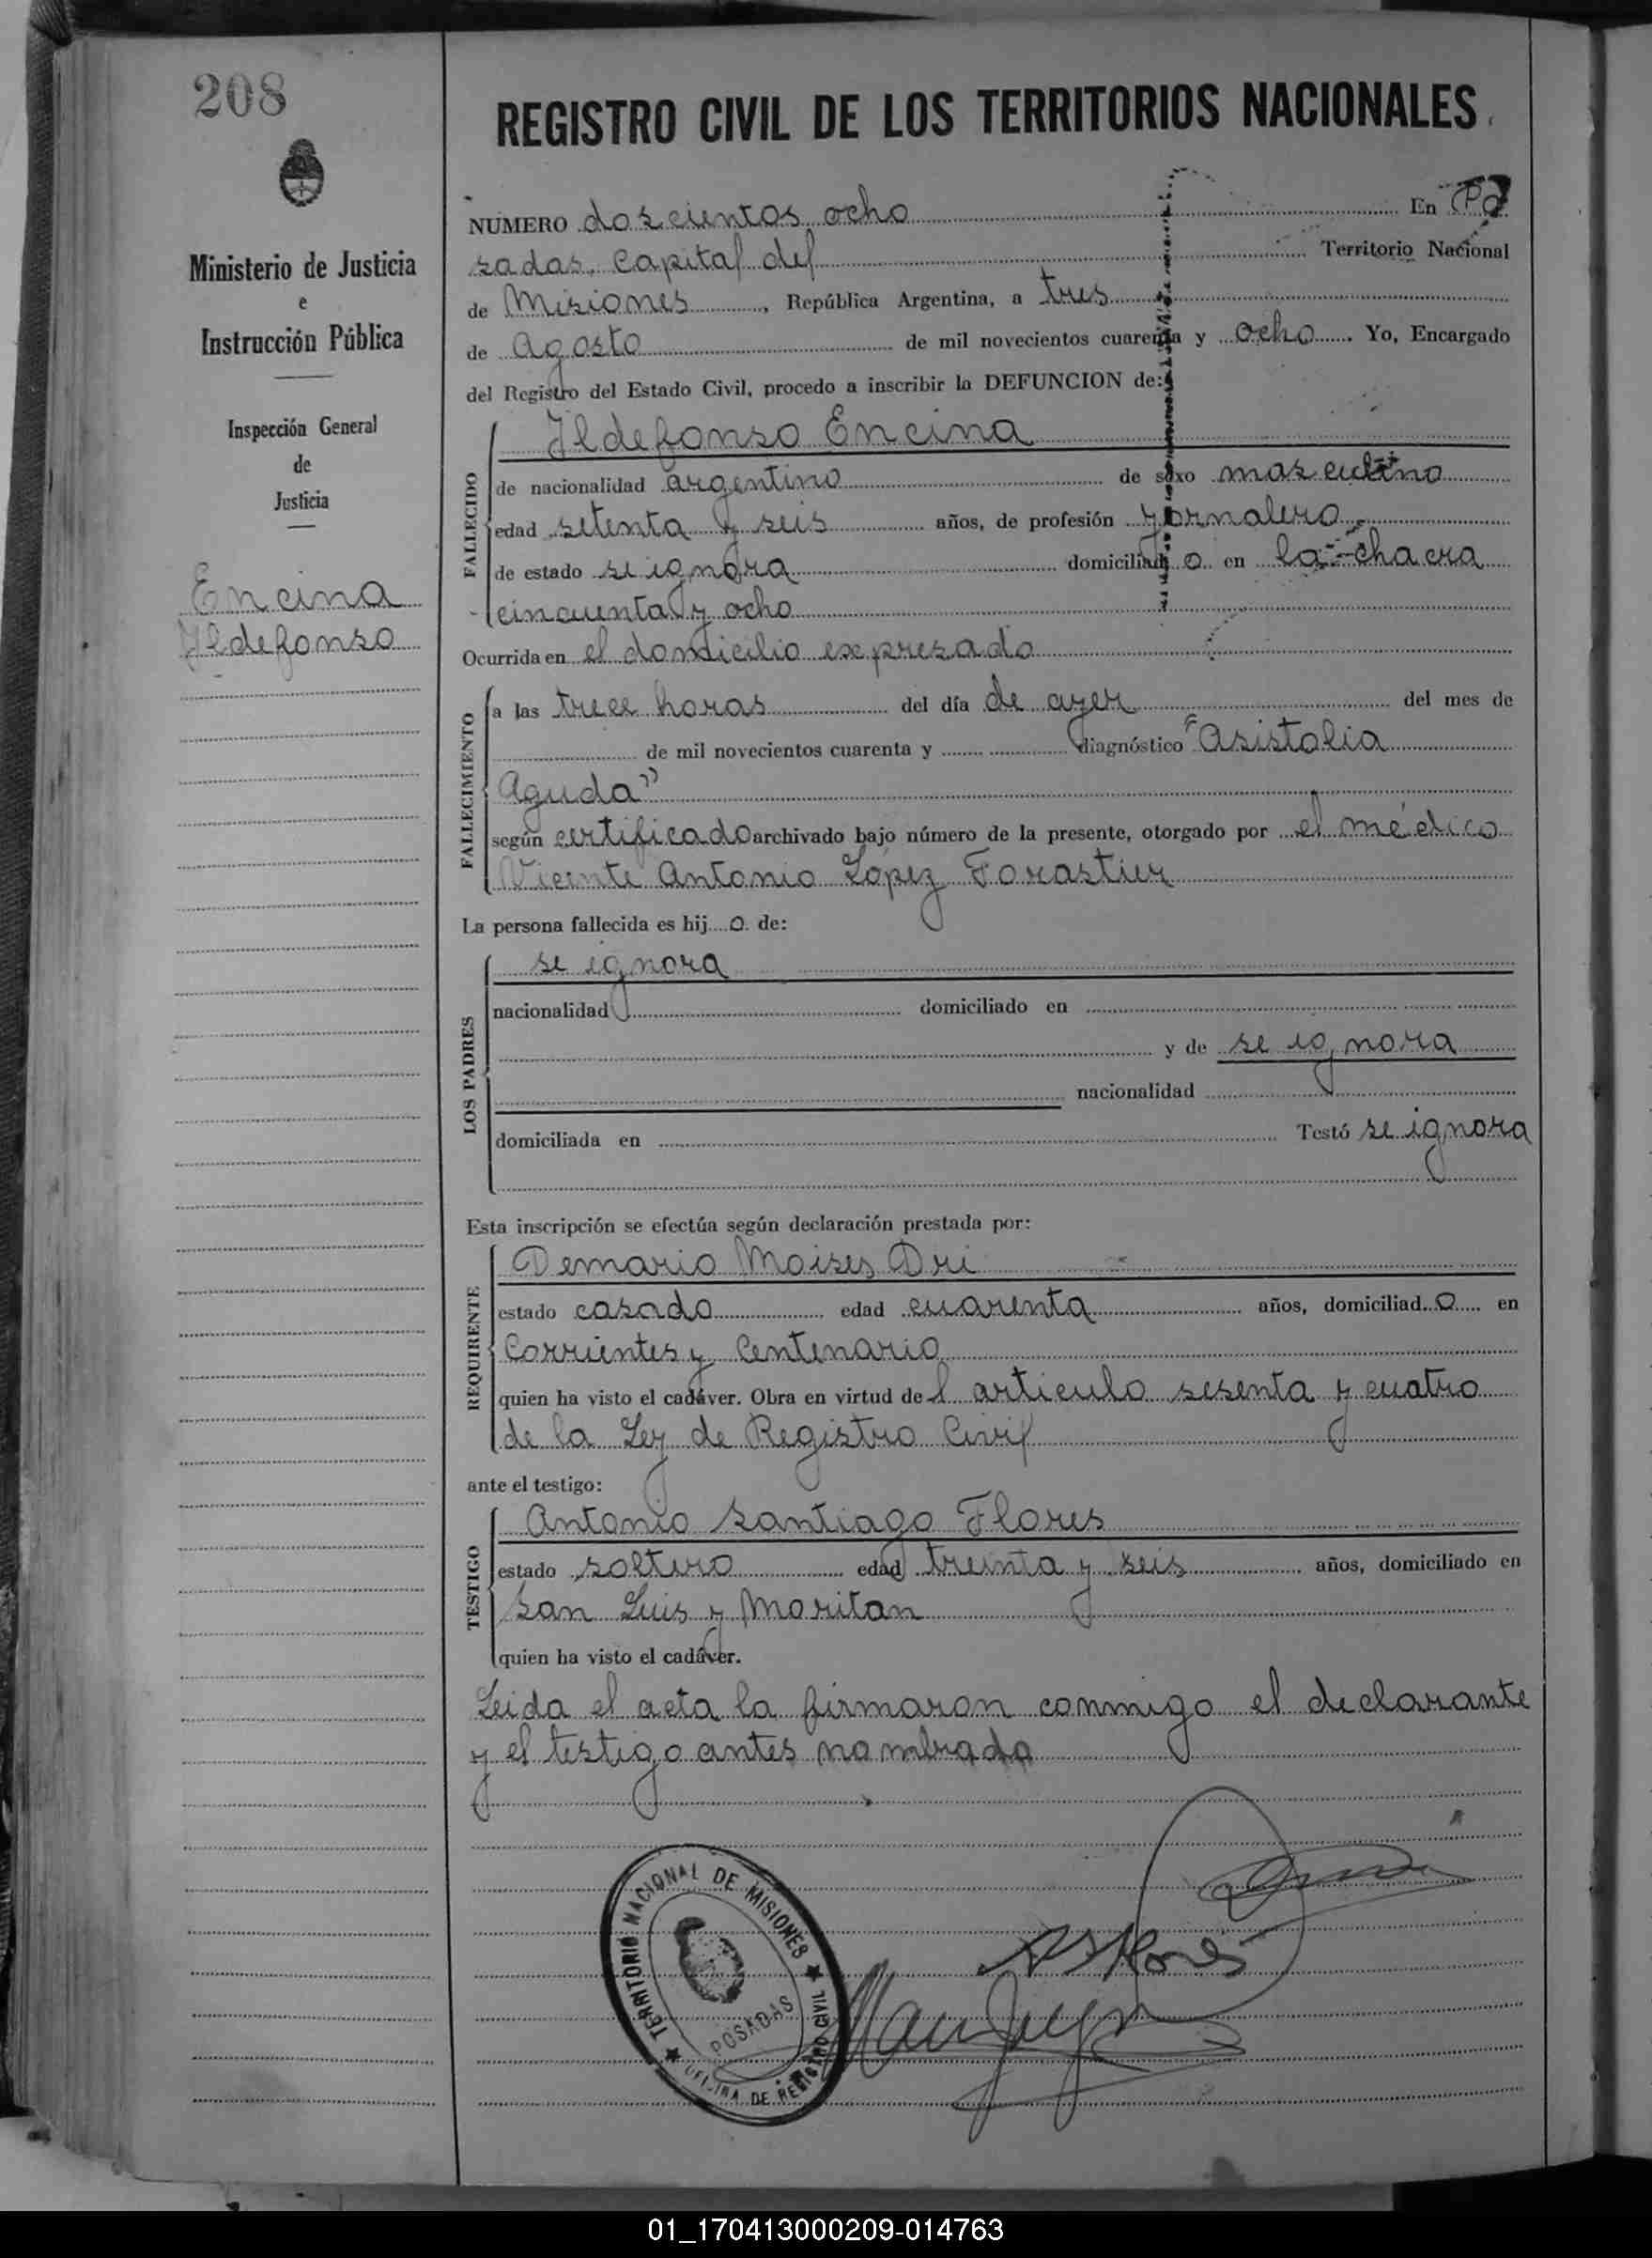 208
Ministerio de Justicia
e
Instrucción Pública
Inspección General
de
Justicia
Encina
Ildefonso
REGISTRO CIVIL DE LOS TERRITORIOS NACIONALES
NUMERO doscientos ocho En Po
sadas, Capital del Territorio Nacional
de Misiones, República Argentina, a tres
de Agosto de mil novecientos cuarenta y ocho. Yo, Encargado
del Registro del Estado Civil, procedo a inscribir la DEFUNCION de:
FALLECIDO
Ildefonso Encina
de nacionalidad argentino de sexo masculino
edad setenta y seis años, de profesión jornalero
de estado se ignora domiciliado en la chacra
cincuenta y ocho
Ocurrida en el domicilio expresado
FALLECIMIENTO
a las trece horas del día de ayer del mes de
de mil novecientos cuarenta y diagnóstico "Asistolia
Aguda"
según certificado archivado bajo número de la presente, otorgado por el médico
Vicente Antonio López Forastier
La persona fallecida es hijo de:
LOS PADRES
se ignora
nacionalidad domiciliado en
y de se ignora
nacionalidad
domiciliada en Testó se ignora
Esta inscripción se efectúa según declaración prestada por:
REQUIRENTE
Demario Moises Dri
estado casado edad cuarenta años, domiciliado en
Corrientes y Centenario
quien ha visto el cadáver. Obra en virtud del articulo sesenta y cuatro
de la Ley de Registro Civil
ante el testigo:
TESTIGO
Antonio Santiago Flores
estado soltero edad treinta y seis años, domiciliado en
San Luis y Moritan
quien ha visto el cadáver.
Leida el acta la firmaron conmigo el declarante
y el testigo antes nombrado
TERRITORIO NACIONAL DE MISIONES
POSADAS
OFICINA DE REGISTRO CIVIL
ASFlores
01_170413000209-014763